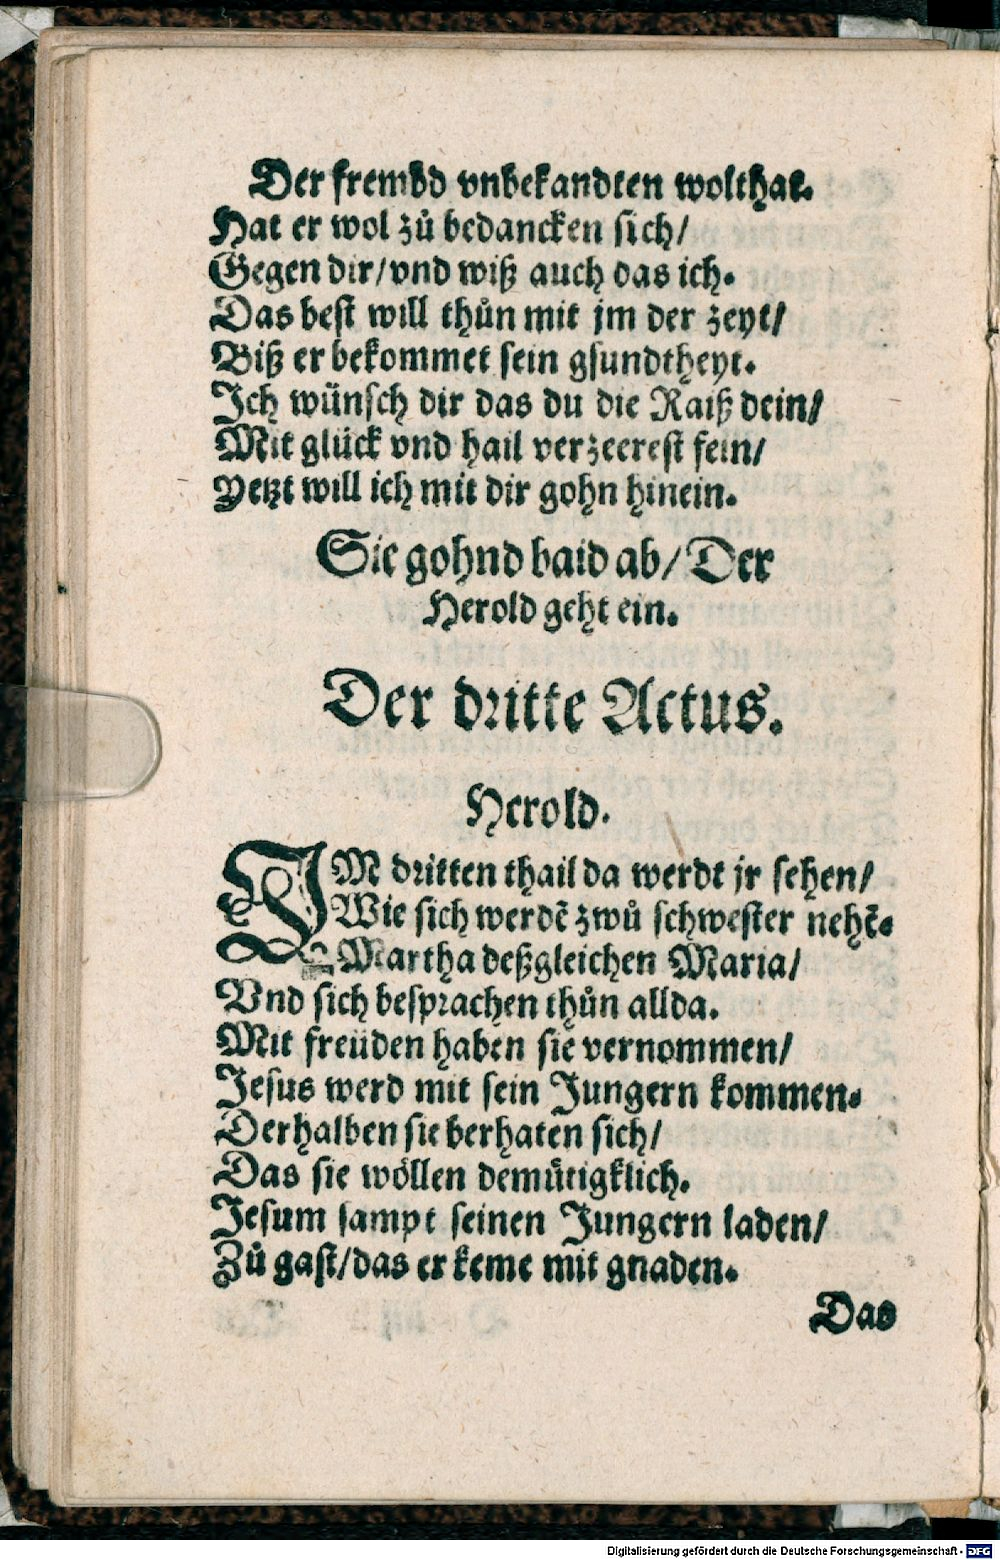 Der frembd vnbekandten wolthat.
Hat er wol zů bedancken sich/
Gegen dir/vnd wiß auch das ich.
Das best will thůn mit jm der zeyt/
Biß er bekommet sein gsundtheyt.
Ich wünsch dir das du die Raiß dein/
Mit glück vnd hail verzeerest fein/
Yetzt will ich mit dir gohn hinein.
Sie gohnd baid ab/Der
Herold geht ein.
Der dritte Actus.
Herold.
IM dritten thail da werdt jr sehen/
Wie sich werdē zwů schwester nehē.
Martha deßgleichen Maria/
Vnd sich besprachen thůn allda.
Mit freüden haben sie vernommen/
Jesus werd mit sein Jungern kommen.
Derhalben sie berhaten sich/
Das sie wöllen demůtigklich.
Jesum sampt seinen Jungern laden/
Zů gast/das er keme mit gnaden.
Das
Digitalisierung gefördert durch die Deutsche Forschungsgemeinschaft - DFG